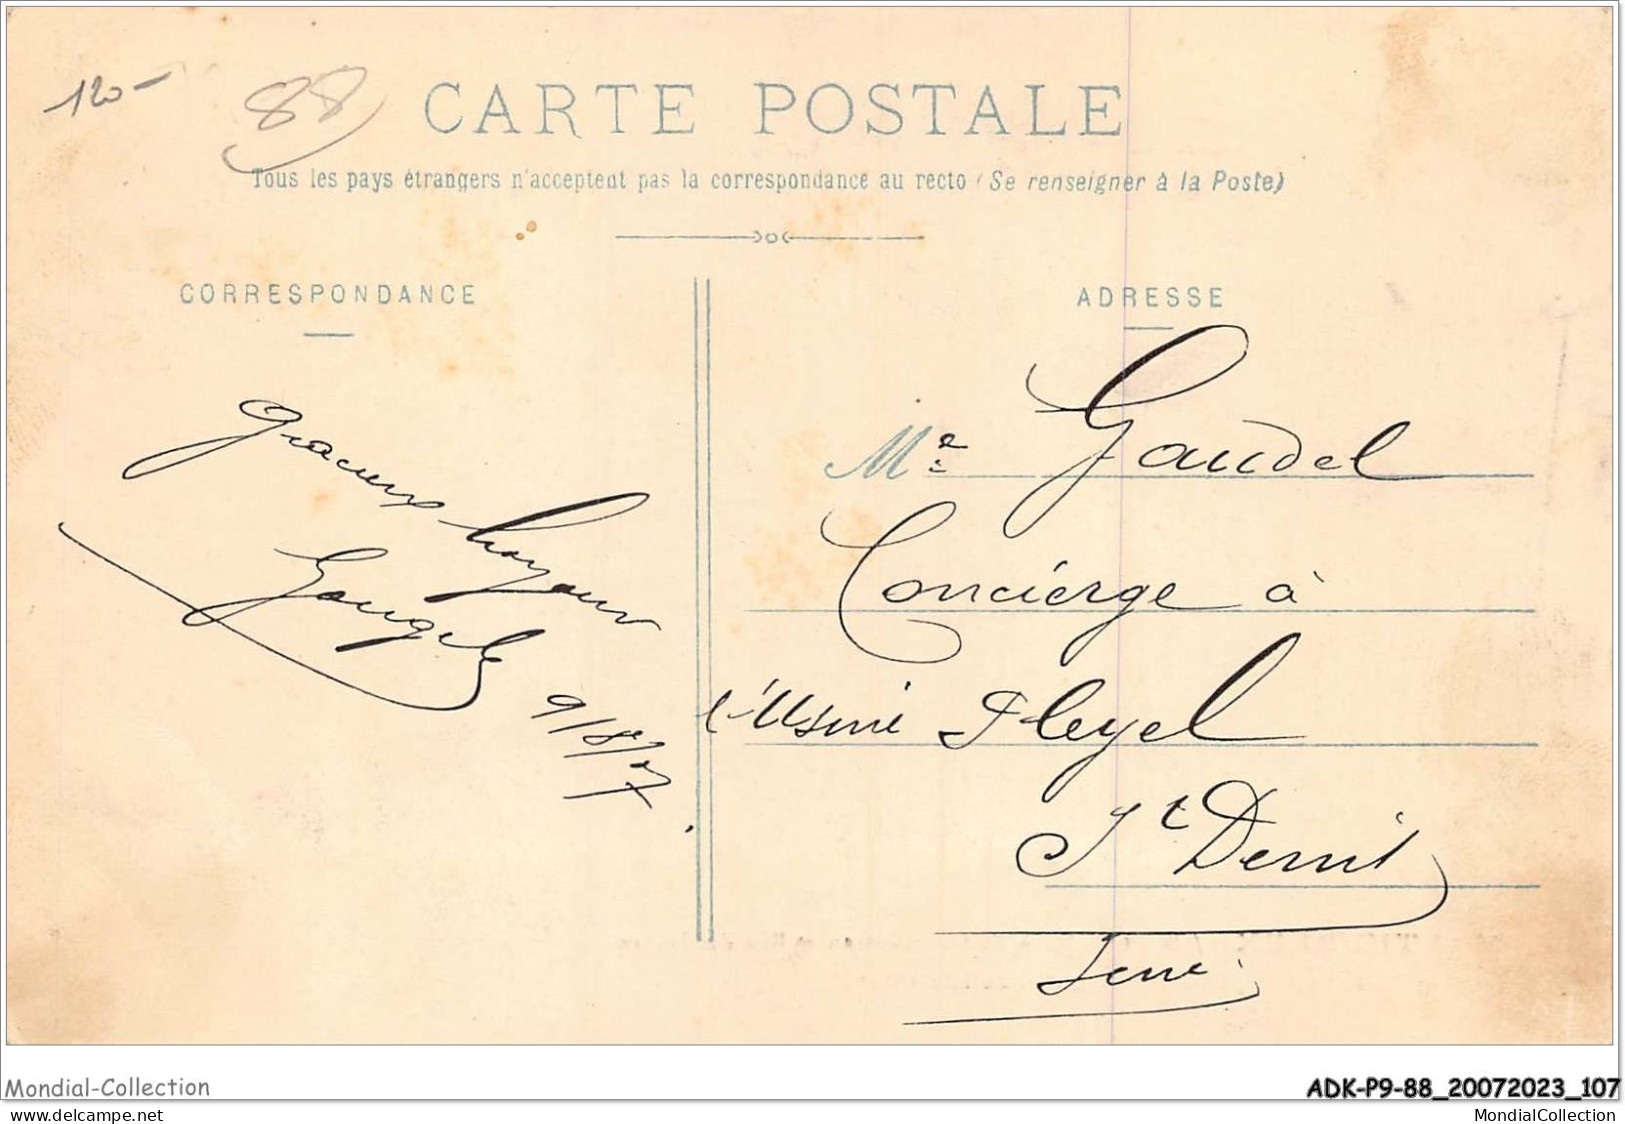 120-
88
CARTE POSTALE
Tous les pays étrangers n'acceptent pas la correspondance au recto (Se renseigner à la Poste)
CORRESPONDANCE
ADRESSE
Mr Gaudel
Concierge à
l'Usine Pleyel
St Denis
Seine
gracieux bonjour
9/8/07
Mondial-Collection
ADK-P9-88_20072023_107
delcampe.net
MondialCollection